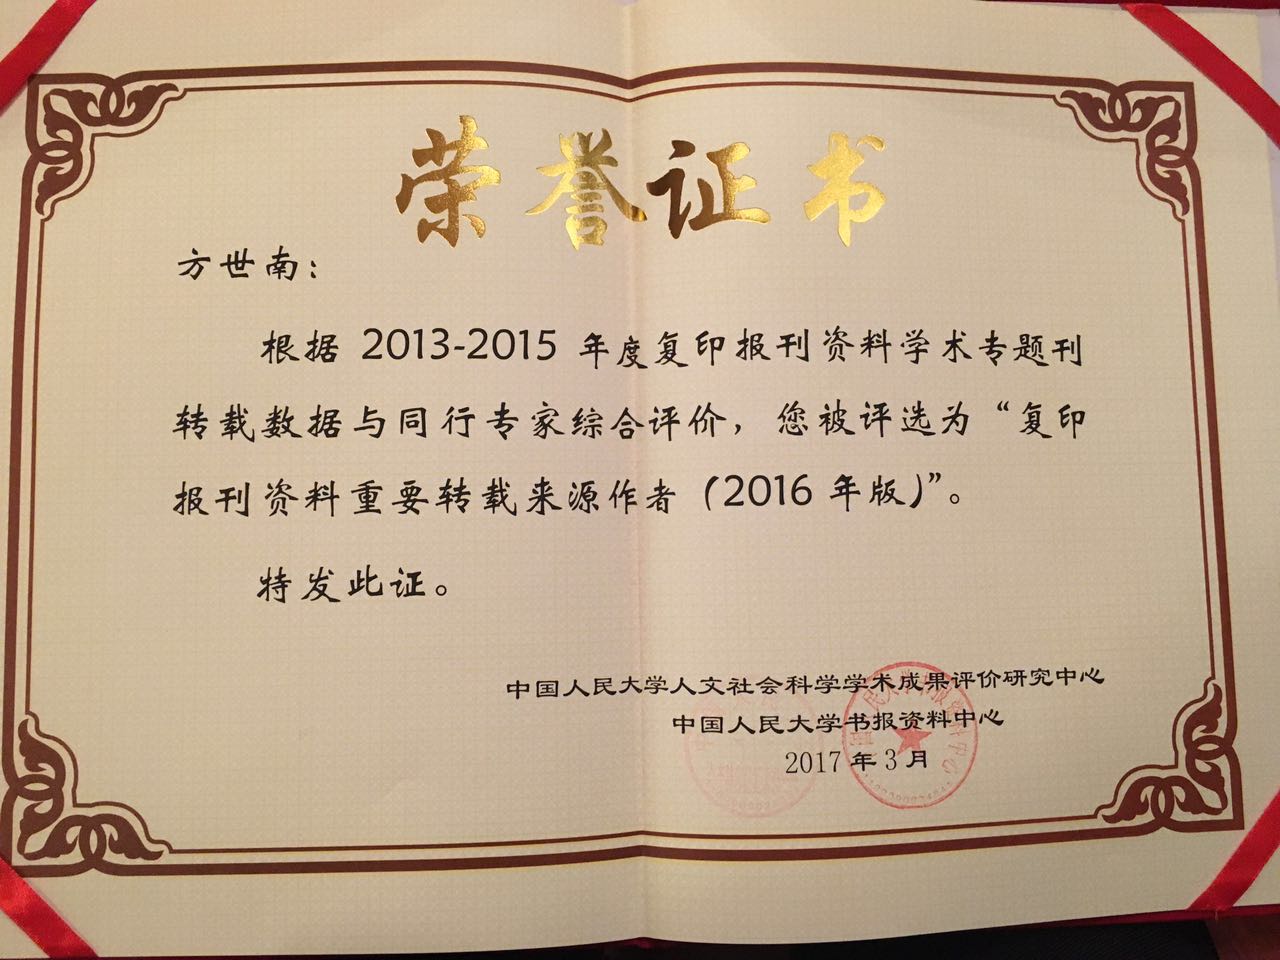 荣誉证书
方世南：
根据 2013-2015 年度复印报刊资料学术专题刊
转载数据与同行专家综合评价，您被评选为“复印
报刊资料重要转载来源作者（2016 年版）”。
特发此证。
中国人民大学人文社会科学学术成果评价研究中心
中国人民大学书报资料中心
2017 年 3 月